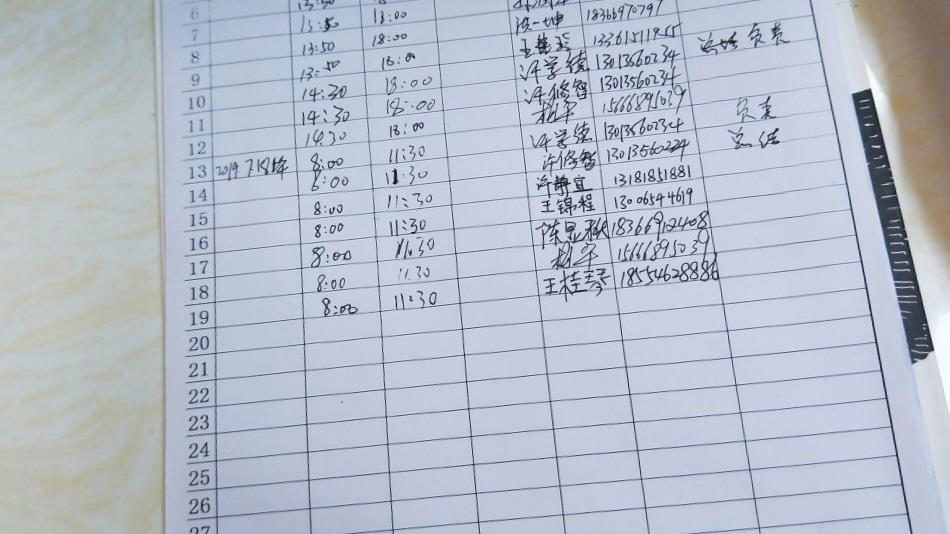 6 13:50 18:00 18366970797
7 13:50 18:00 13361511955 总结 负责
8 13:50 18:00 许学续 13013560234
9 14:30 18:00 许修智 13013560234
10 14:30 18:00 杨军 15666895039
11 14:30 18:00 许学续 13013560234 负责
12 8:00 11:30 许修智 13013560224 总结
13 2019 7.18 8:00 11:30 许静宜 13181851881
14 8:00 11:30 王锦程 13006544619
15 8:00 11:30 陈显秋 18366912408
16 8:00 11.30 杨军 15666895039
17 8:00 11.30 王桂琴 18554628886
18 8:00 11:30
19
20
21
22
23
24
25
26
27